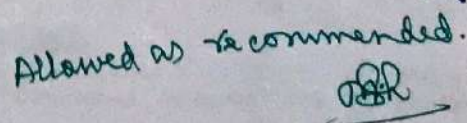 Allowed as recommended.